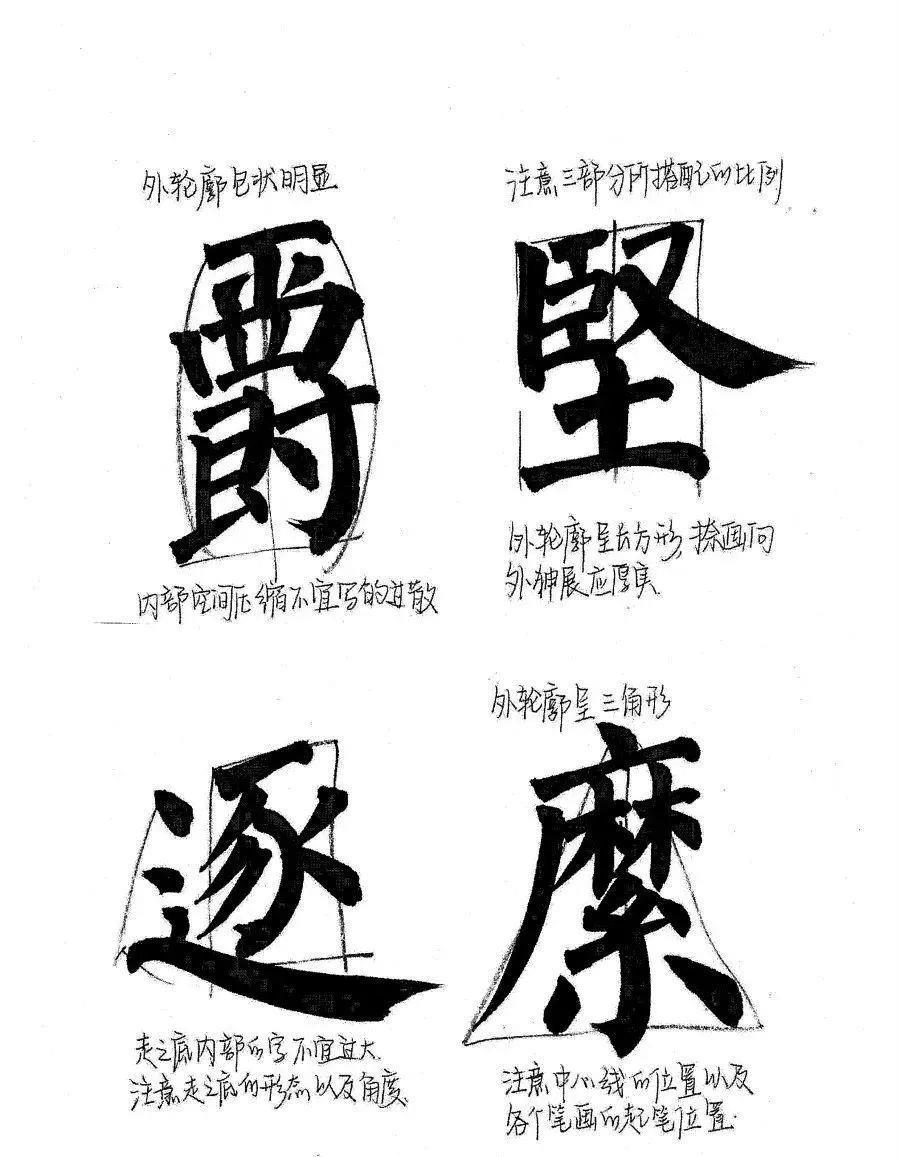 外轮廓包状明显
爵
内部空间压缩不宜写的过散
注意三部分所搭配的比例
堅
外轮廓呈长方形,捺画向
外伸展应厚实
逐
走之底内部的字不宜过大.
注意走之底的形态以及角度.
外轮廓呈三角形
縻
注意中心线的位置以及
各个笔画的起笔位置.